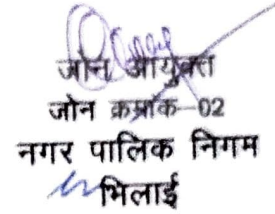 जोन आयुक्त
जोन क्रमांक-02
नगर पालिक निगम
भिलाई